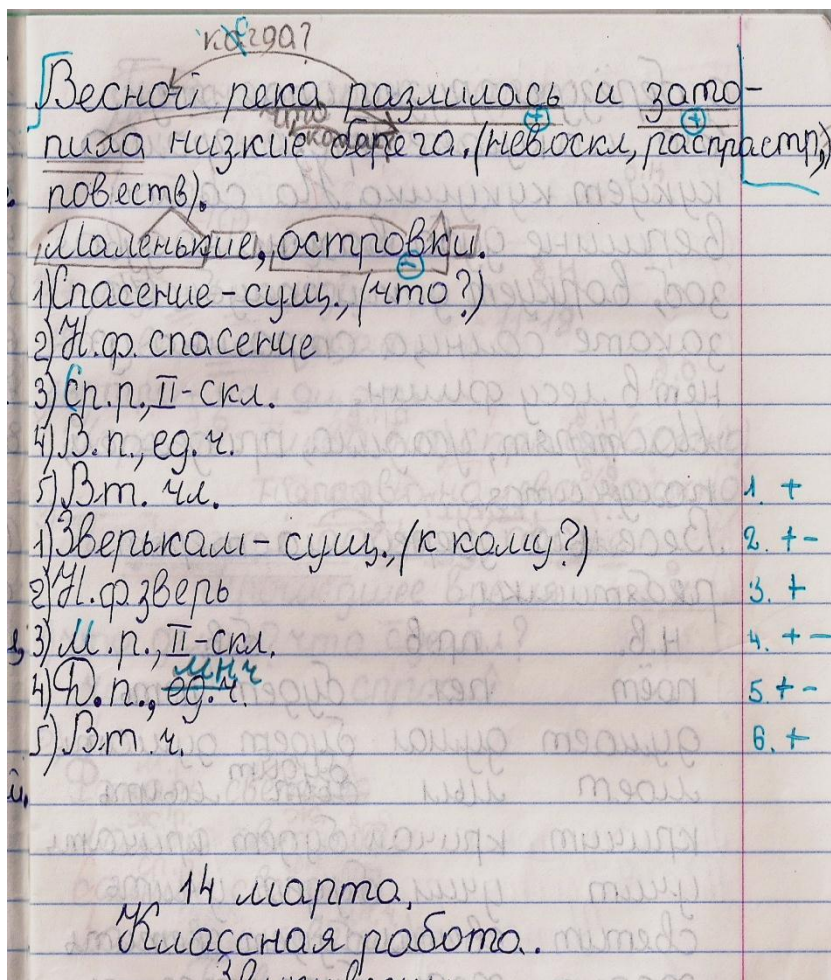 когда?
Весной река разлилась и зато-
что
пила низкие берега. (невоскл, распрастр,)
повеств).
Маленькие, островки.
1) Спасение - сущ., (что?)
2) Н.ф. спасение
3) Ср.р., II-скл.
4) В.п., ед.ч.
5) Вт. чл. 1. +
1) Зверькам - сущ., (к кому?) 2. + -
2) Н.ф зверь 3. +
3) М.р., II-скл. 4. + -
мн ч
4) Д.п., ед.ч. 5. + -
5) Вт. ч. 6. +
14 марта.
Классная работа.